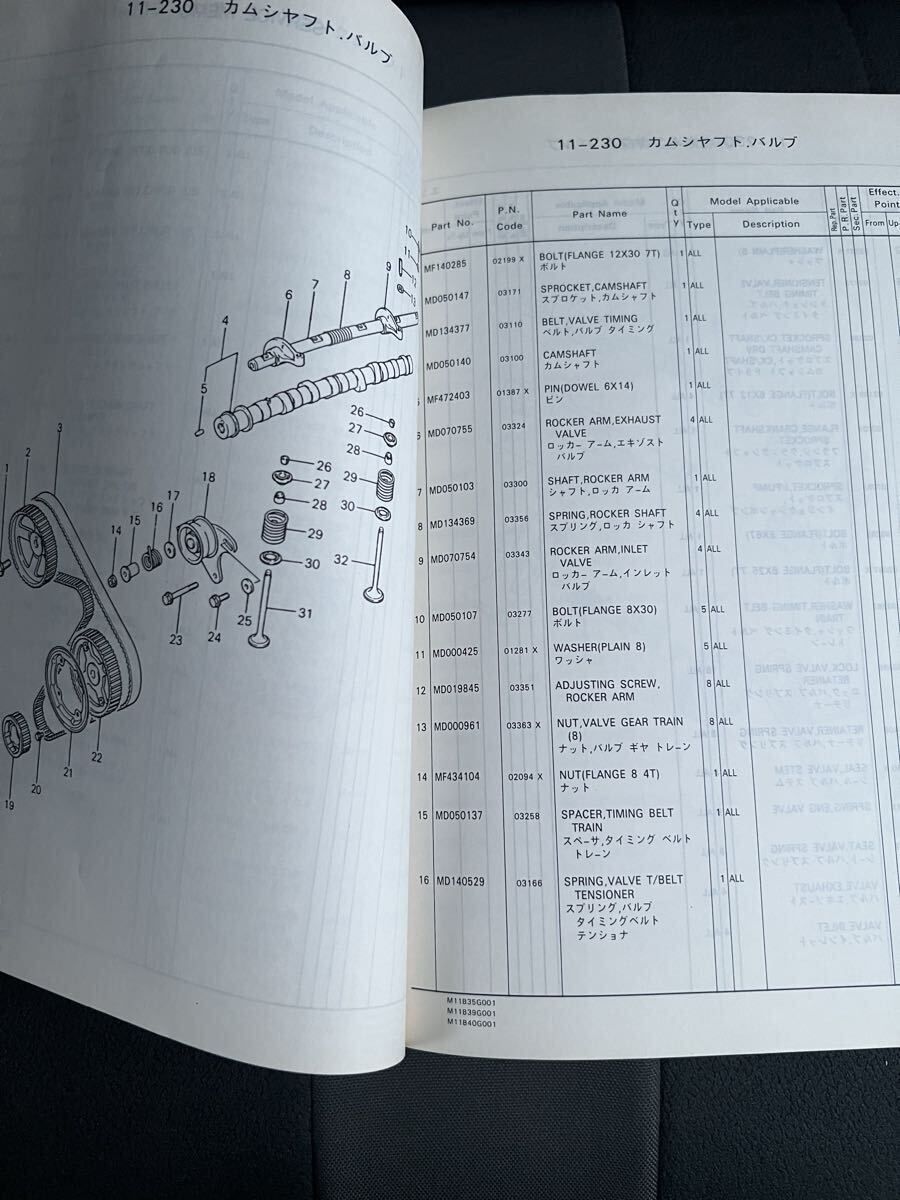 11-230 カムシヤフト.バルブ
4
5
6
7
8
9
10
11
12
13
1
2
3
14
15
16
17
18
26
27
28
29
30
26
27
28
29
30
31
32
23
24
25
19
20
21
22
11-230 カムシヤフト.バルブ
Part No.
P.N. Code
Part Name
Qty
Model Applicable
Type
Description
Rep.Part
P.R.Part
Sec.Part
Effect. Point
From
MF140285 02199 X BOLT(FLANGE 12X30 7T) 1 ALL
ボルト
MD050147 03171 SPROCKET,CAMSHAFT 1 ALL
スプロケット,カムシャフト
MD134377 03110 BELT,VALVE TIMING 1 ALL
ベルト,バルブ タイミング
MD050140 03100 CAMSHAFT 1 ALL
カムシャフト
MF472403 01387 X PIN(DOWEL 6X14) 1 ALL
ピン
MD070755 03324 ROCKER ARM,EXHAUST 4 ALL
VALVE
ロッカー アーム,エキゾスト
バルブ
7 MD050103 03300 SHAFT,ROCKER ARM 1 ALL
シャフト,ロッカ アーム
8 MD134369 03356 SPRING,ROCKER SHAFT 4 ALL
スプリング,ロッカ シャフト
9 MD070754 03343 ROCKER ARM,INLET 4 ALL
VALVE
ロッカー アーム,インレット
バルブ
10 MD050107 03277 BOLT(FLANGE 8X30) 5 ALL
ボルト
11 MD000425 01281 X WASHER(PLAIN 8) 5 ALL
ワッシャ
12 MD019845 03351 ADJUSTING SCREW, 8 ALL
ROCKER ARM
13 MD000961 03363 X NUT,VALVE GEAR TRAIN 8 ALL
(8)
ナット,バルブ ギヤ トレーン
14 MF434104 02094 X NUT(FLANGE 8 4T) 1 ALL
ナット
15 MD050137 03258 SPACER,TIMING BELT 1 ALL
TRAIN
スペーサ,タイミング ベルト
トレーン
16 MD140529 03166 SPRING,VALVE T/BELT 1 ALL
TENSIONER
スプリング,バルブ
タイミングベルト
テンショナ
M11B35G001
M11B39G001
M11B40G001